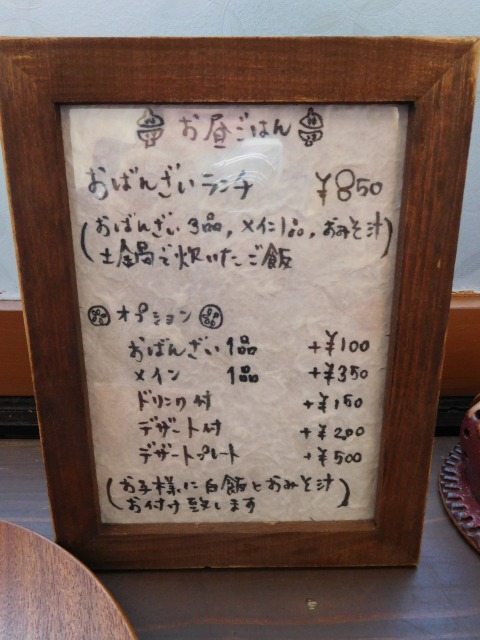 お昼ごはん
おばんざいランチ ¥850
(おばんざい3品, メイン1品, おみそ汁
土鍋で炊いたご飯)
オプション
おばんざい1品 +¥100
メイン 1品 +¥350
ドリンク付 +¥150
デザート付 +¥200
デザートプレート +¥500
(お子様に白飯とおみそ汁
お付け致します)